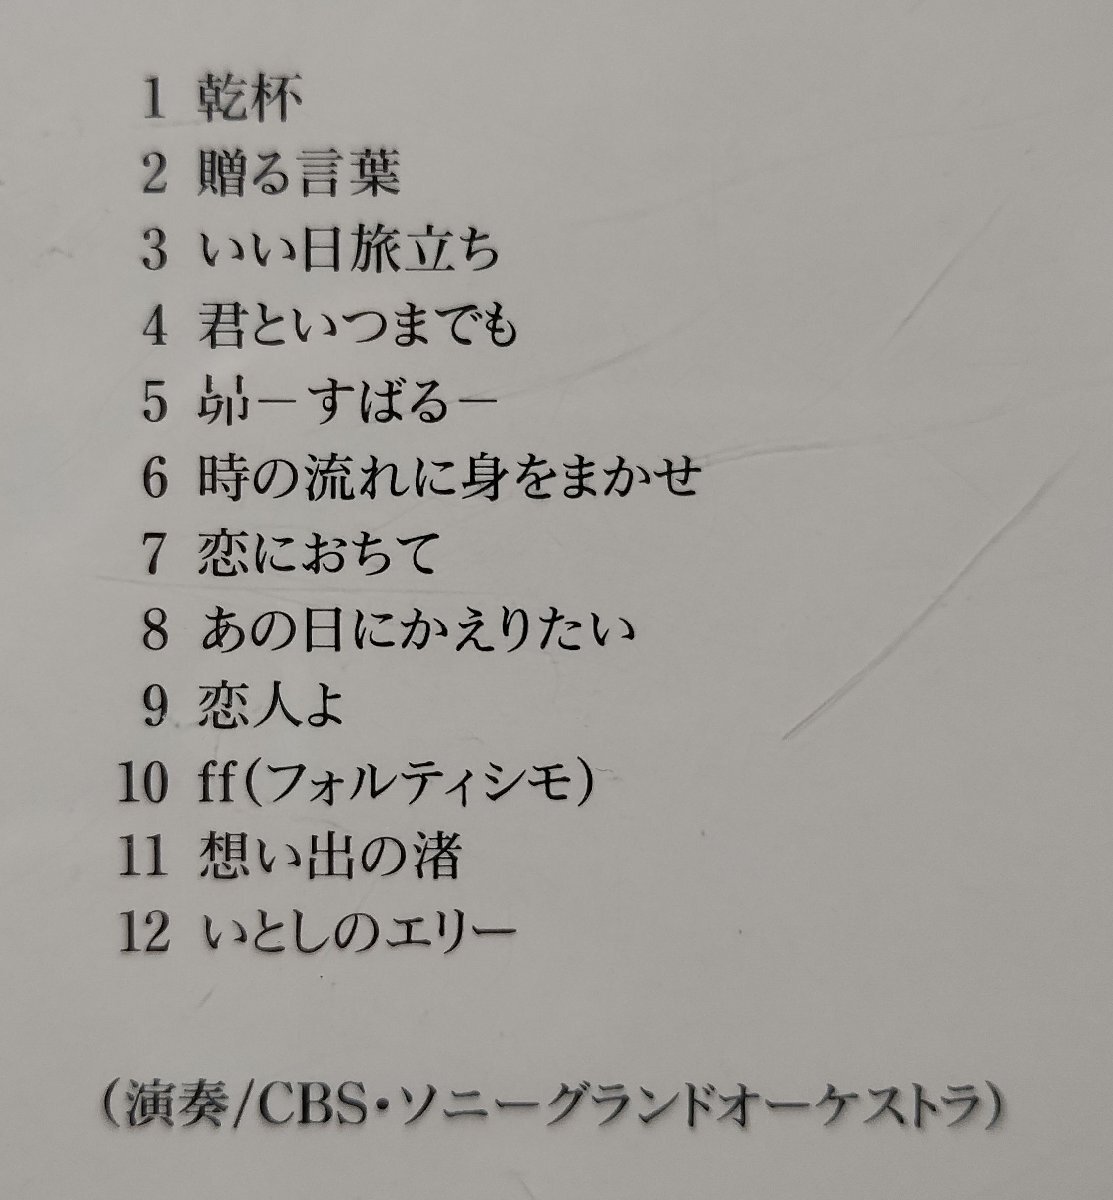 1 乾杯
2 贈る言葉
3 いい日旅立ち
4 君といつまでも
5 昴－すばる－
6 時の流れに身をまかせ
7 恋におちて
8 あの日にかえりたい
9 恋人よ
10 ff(フォルティシモ)
11 想い出の渚
12 いとしのエリー
(演奏/CBS・ソニーグランドオーケストラ)